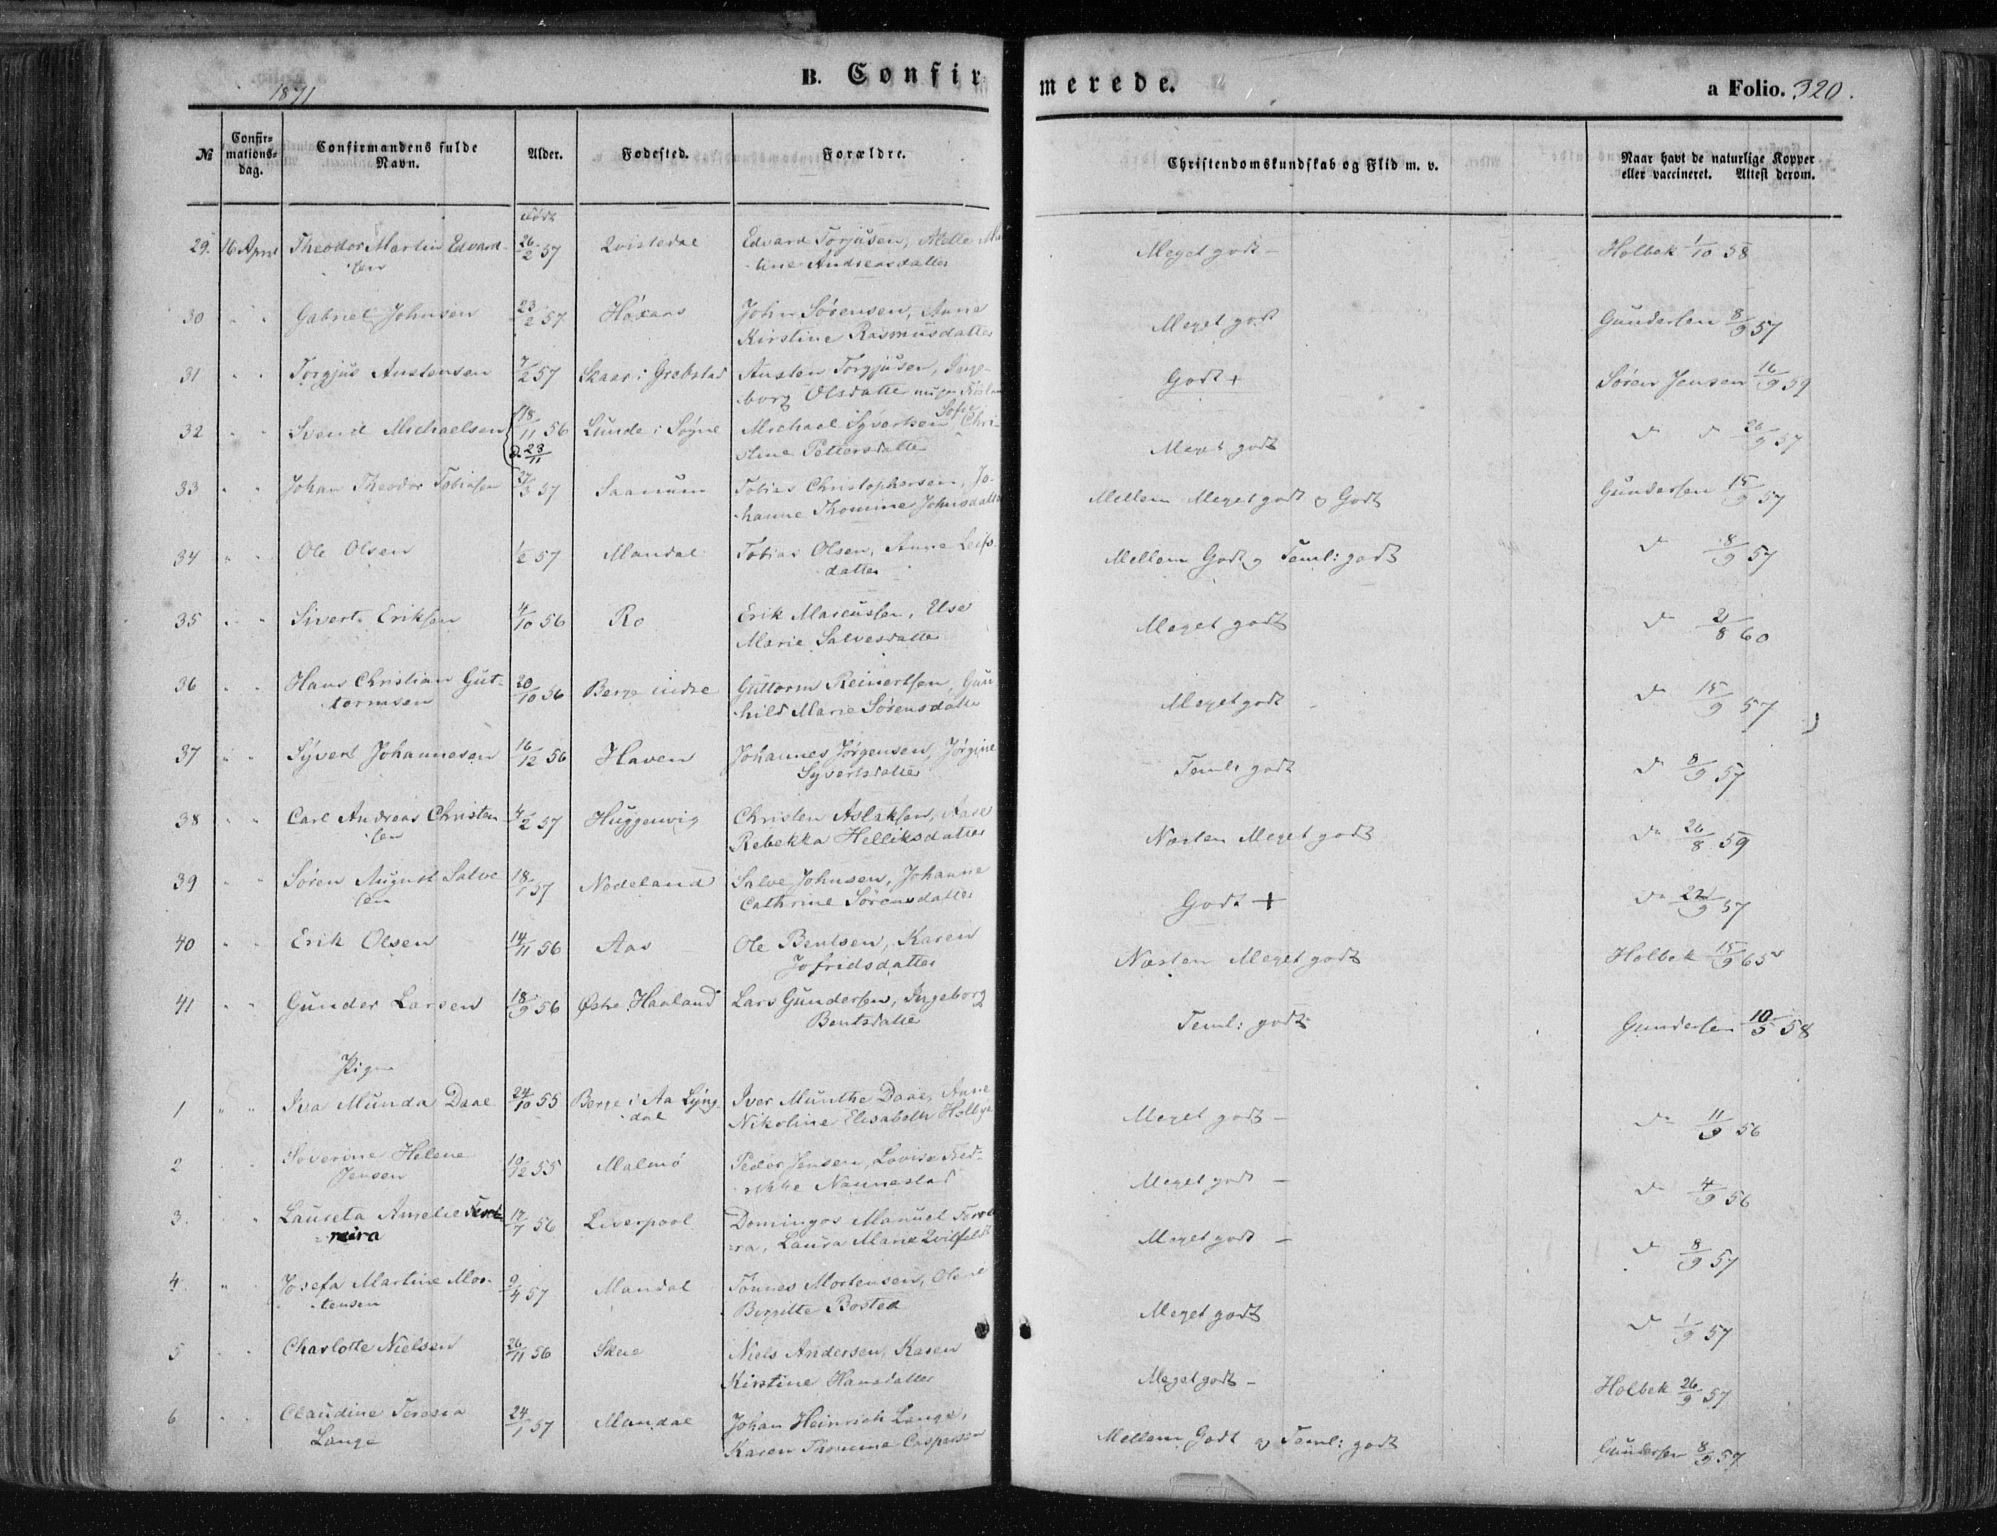 B. Confirmerede.
a Folio. 320.
1871
№ Confirmationsdag. Confirmandens fulde Navn. Alder. Fødested. Forældre. Christendomskundskab og Flid m. v. Naar havt de naturlige Kopper eller vaccineret. Attest derom.
født
29. 16 April Theodor Martin Edvard- 26/2 57 Qvistedal Edvard Torjusen, Meget godt - Holbek 1/10 58
sen tine Andreasdatter
30 " " Gabriel Johnsen 23/2 57 John Sørensen, Anne Meget godt Gundersen 8/9 57
Kirstine Rasmusdatter
31 " " Torgjus Austensen 7/2 57 Skaar i Grebstad Austen Torgjusen, Inge- Godt + Søren Jensen 16/9 59
borg Olsdatter
32 " " Svend Michaelsen 18/11 56 Lunde i Søgne Michael Syvertsen, Sofie Chri- Meget godt d d 26/9 57
d 23/11 stine Pettersdatter
33 " " Johan Theodor Tobiasen 27/3 57 Saanum Tobias Christophersen, Jo- Mellem Meget godt og Godt Gundersen 15/9 57
hanne Thomine Johnsdatter
34 " " Ole Olsen 1/2 57 Mandal Tobias Olsen, Anne Leifs- Mellem Godt og Teml: godt do 8/9 57
datter
35 " " Sivert Eriksen 4/10 56 Ro Erik Marcussen, Else Meget godt do 21/8 60
Marie Salvesdatter
36 " " Hans Christian Gut- 20/10 56 Berge indre Guttorm Reinertsen, Gun Meget godt do 15/9 57
tormsen hild Marie Sørensdatter
37 " " Syvert Johannesen 16/12 56 Haven Johannes Jørgensen, Jørgine Teml: godt do 8/9 57
Syvertsdatter
38 " " Carl Andreas Christen 4/2 57 Huggenvig Christen Aslaksen, Aase Næsten Meget godt do 26/8 59
sen Rebekka Helliksdatter
39 " " Søren August Salve 18/1 57 Nødeland Salve Johnsen, Johanne Godt + do 22/9 57
sen Cathrine Sørensdatter
40 " " Erik Olsen 14/11 56 Aas Ole Bentsen, Karen Næsten Meget godt Holbek 15/9 65
Jofridsdatter
41 " " Gunder Larsen 18/9 56 Østre Haaland Lars Gundersen, Ingeborg Teml: godt Gundersen 10/5 58
Bentsdatter
Piger
1 " " Iva Munda Daae 24/10 55 Berge i Aa Lyng- Iver Munthe Daae, Anne Meget godt - do 11/9 56
dal Nikoline Elisabeth Holbye
2 " " Severine Helene 10/12 55 Malmø Peder Jensen, Lovise Fred- Meget godt - do 4/9 56
Jensen rikke Nannestad
3. " Laureta Amelie 17/7 56 Liverpool Domingos Manuel Meget godt - do 8/9 57
reira ra, Laura Marie Qvilfeldt
4 " " Josefa Martine Mor- 9/4 57 Mandal Tønnes Mortensen, Olene Meget godt do 1/9 57
tensen Birgitte Bosted
5 " " Charlotte Nielsen 26/11 56 Skeie Niels Andersen, Karen Meget godt - Holbek 26/9 57
Kirstine Hansdatter
6 " " Claudine Teresia 24/1 57 Mandal Johan Heinrich Lange, Mellem Godt og Teml: godt Gundersen 8/9 57
Lange Karen Thomine Caspersen